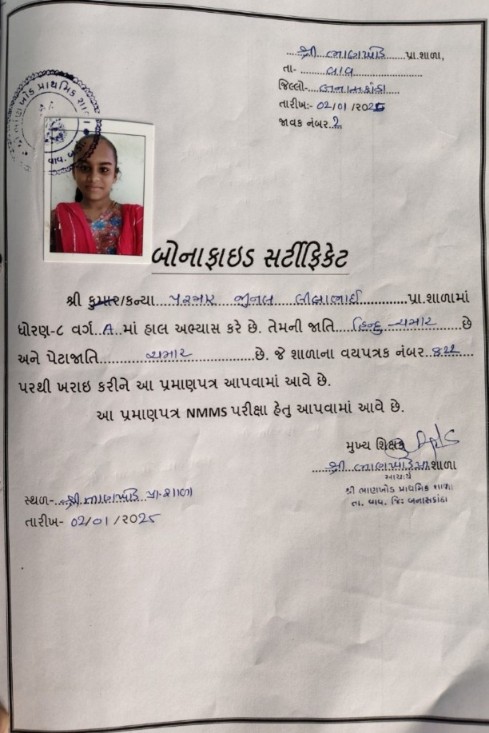 શ્રી ભાણખોડ પ્રા.શાળા,
તા- વાવ
જિલ્લો- બનાસકાંઠા
તારીખ:- 02/01/2025
જાવક નંબર. 2
બોનાફાઇડ સર્ટીફિકેટ
શ્રી કુમાર/કન્યા પરમાર જીનલ પ્રા.શાળામાં
ધોરણ-૮ વર્ગ. A માં હાલ અભ્યાસ કરે છે. તેમની જાતિ હિન્દુ-ચમાર છે
અને પેટાજાતિ ચમાર છે. જે શાળાના વયપત્રક નંબર. 822
પરથી ખરાઇ કરીને આ પ્રમાણપત્ર આપવામાં આવે છે.
આ પ્રમાણપત્ર NMMS પરીક્ષા હેતુ આપવામાં આવે છે.
મુખ્ય શિક્ષક
શ્રી ભાણખોડ પ્રા.શાળા
આચાર્ય
શ્રી ભાણખોડ પ્રાથમિક શાળા
તા. વાવ, જિ. બનાસકાંઠા
સ્થળ:- શ્રી ભાણખોડ પ્રા.શાળા
તારીખ- 02/01/2025